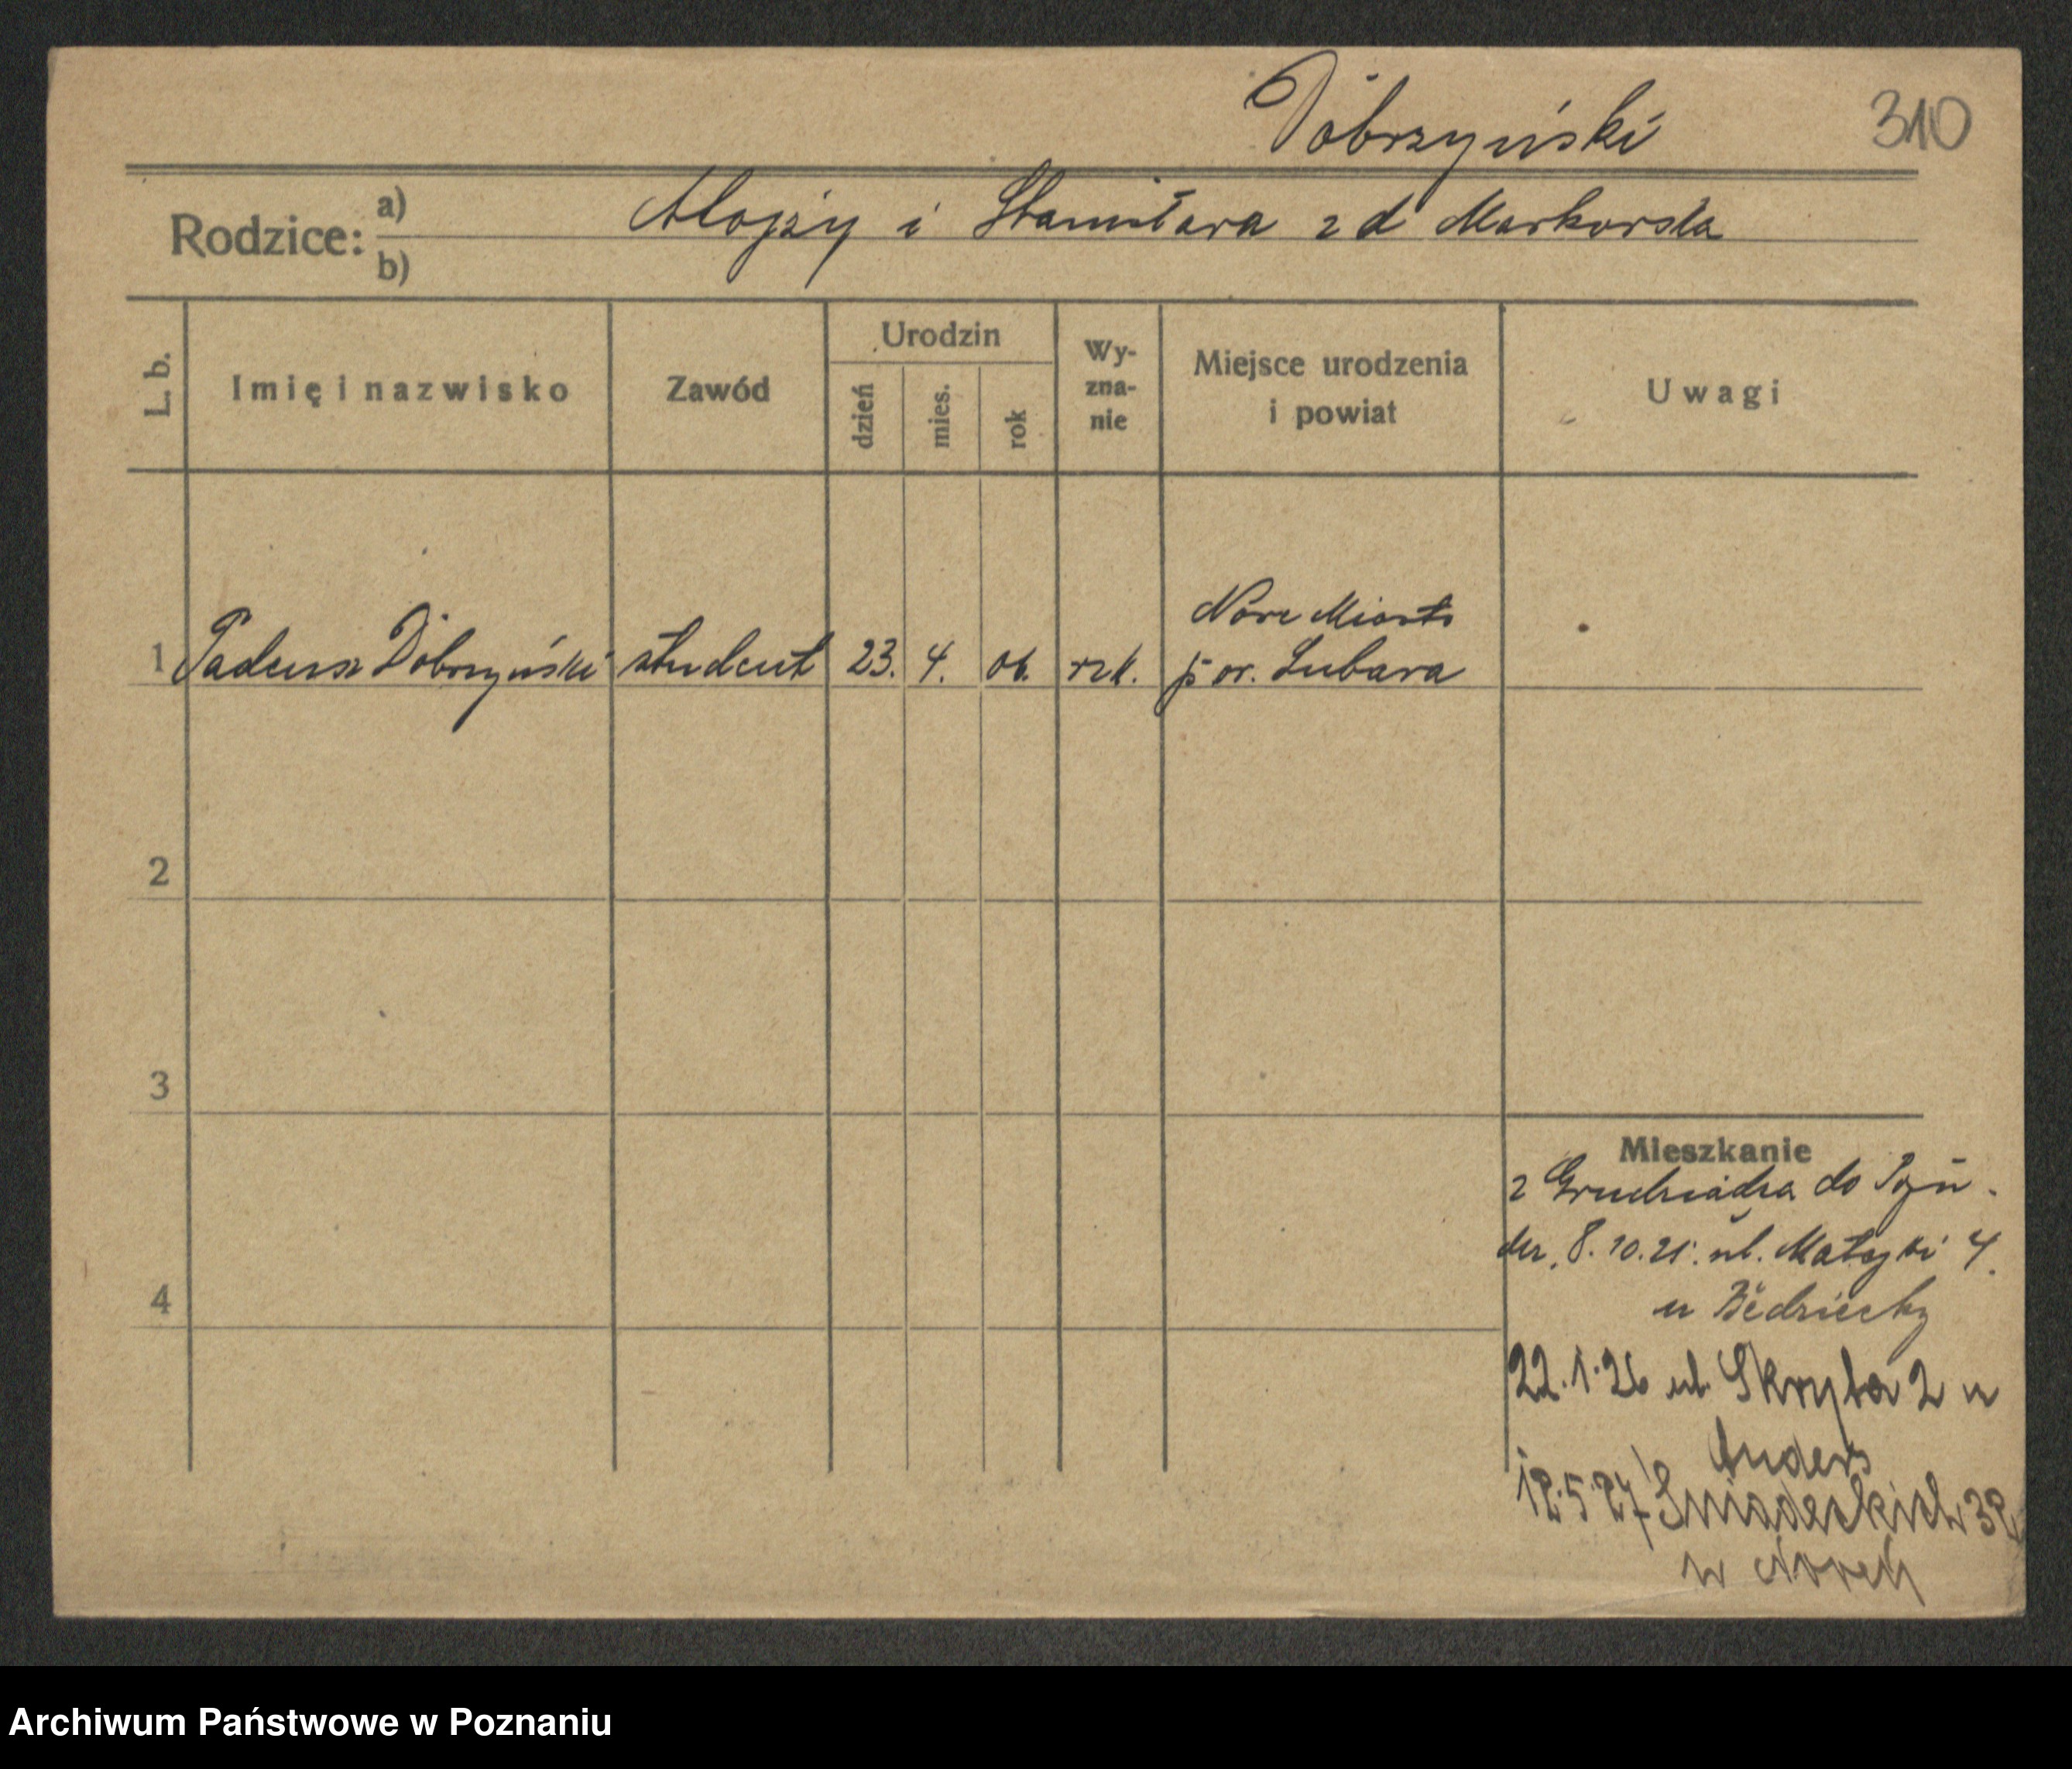 Dobrzyński
310
Rodzice: a) Alojzy i Stanisława z d Markowska
b)
L. b.
Imię i nazwisko
Zawód
Urodzin
dzień
mies.
rok
Wy-
zna-
nie
Miejsce urodzenia
i powiat
Uwagi
1 Tadeusz Dobrzyński student 23. 4. 06. rzk. Nowe Miasto
pow. Lubawa
2
3
4
Mieszkanie
z Grudziądza do Pozn.
8.10.25. ul. Matejki 4.
u
22.1.26 ul. Skryta 2 u
Anders
12.5.27 Śniadeckich 32
u
Archiwum Państwowe w Poznaniu